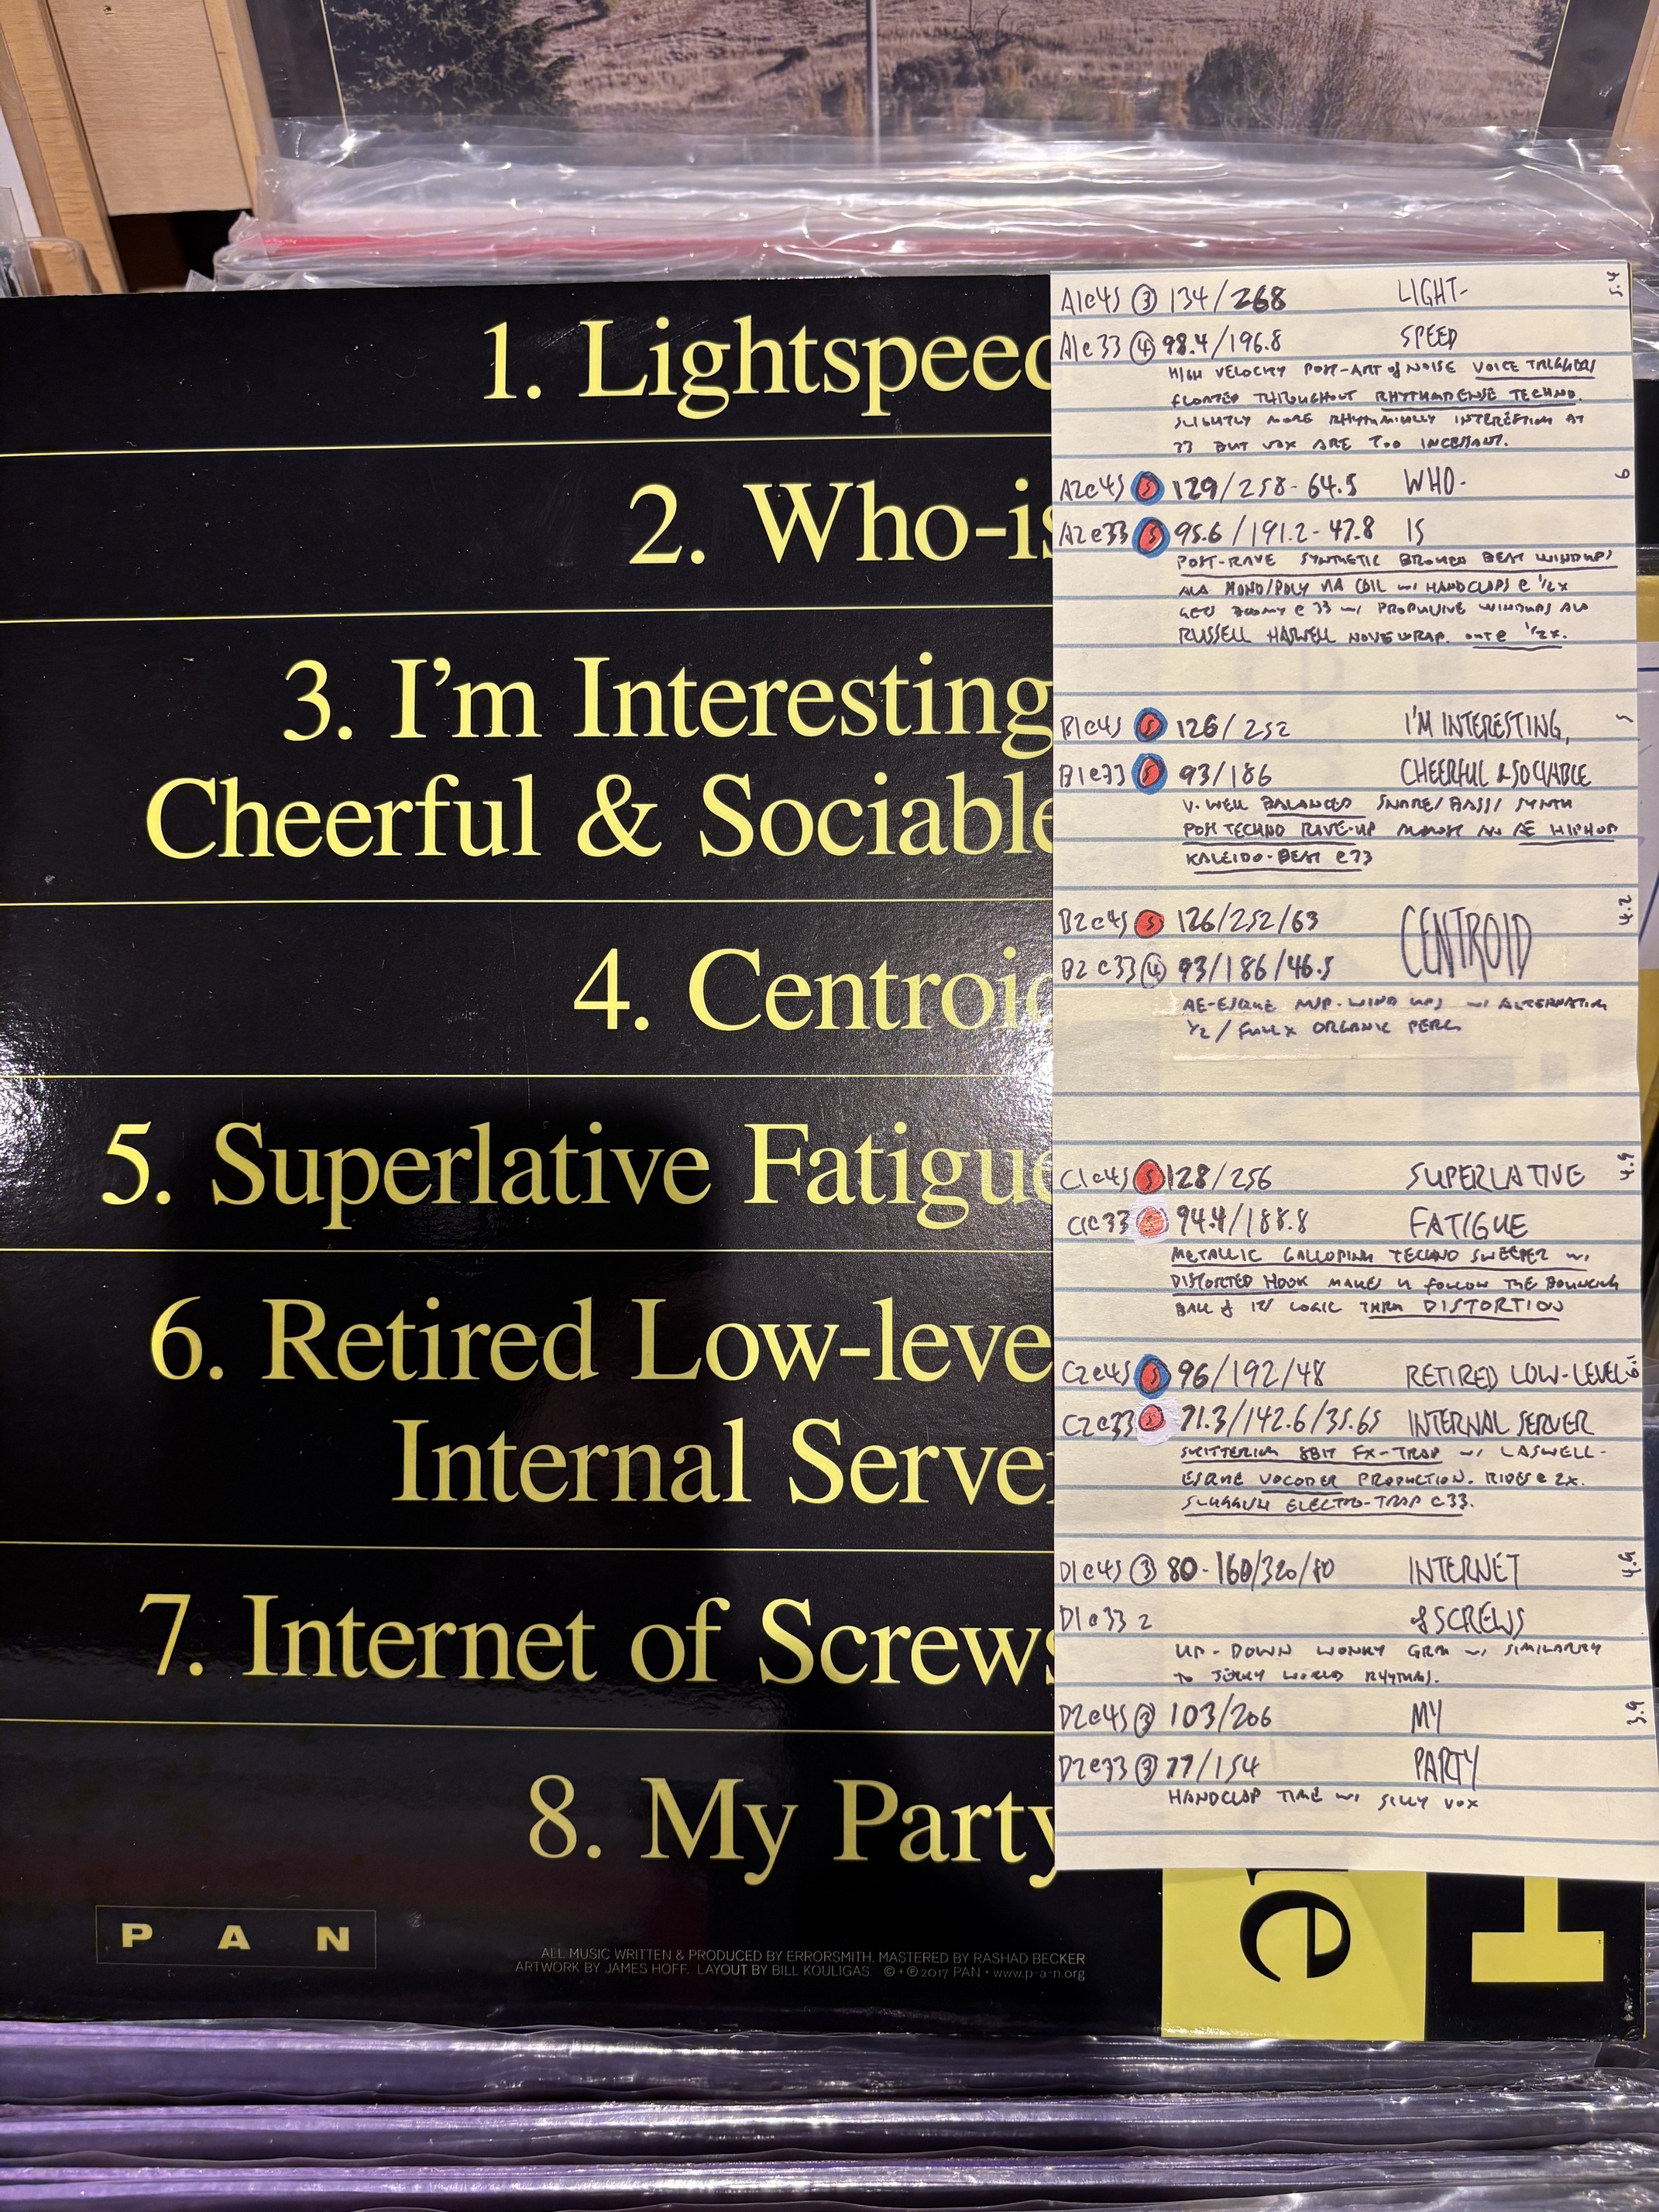 1. Lightspeed
2. Who-is
3. I'm Interesting
Cheerful & Sociable
4. Centroid
5. Superlative Fatigue
6. Retired Low-level
Internal Server
7. Internet of Screws
8. My Party
P A N
ALL MUSIC WRITTEN & PRODUCED BY ERRORSMITH. MASTERED BY RASHAD BECKER
ARTWORK BY JAMES HOFF. LAYOUT BY BILL KOULIGAS. ©+℗ 2017 PAN • www.p-a-n.org
A1@45 3 134/268 LIGHT- 5.4
A1@33 4 98.4/196.8 SPEED
HIGH VELOCITY POST-ART of NOISE VOICE TRIGGERS
FLOATED THROUGHOUT RHYTHMDENSE TECHNO.
SLIGHTLY MORE RHYTHMICALLY INTERESTING AT
33 BUT VOX ARE TOO INCESSANT.
A2@45 5 129/258-64.5 WHO- 6
A2@33 5 95.6/191.2-47.8 IS
POST-RAVE SYNTHETIC BROKEN BEAT WINDUPS
ALA MONO/POLY VIA COIL w/ HANDCLAPS @ 1/2x
GETS @ 33 w/ PROPULSIVE WINDUPS ALA
RUSSELL HASWELL @ 1/2x.
B1@45 5 126/252 I'M INTERESTING, 5
B1@33 5 93/186 CHEERFUL & SOCIABLE
V. WELL BALANCED SNARE/BASS/SYNTH
POST TECHNO RAVE-UP ALMOST AN AE HIPHOP
KALEIDO-BEAT @33
B2@45 5 126/252/63 CENTROID 4.2
B2@33 4 93/186/46.5
AE-ESQUE WIND UPS w/ ALTERNATING
1/2 / FULLx ORGANIC PERC.
C1@45 5 128/256 SUPERLATIVE 4.9
C1@33 5 94.4/188.8 FATIGUE
METALLIC GALLOPING TECHNO SWEEPER w/
DISTORTED HOOK MAKES U FOLLOW THE BOUNCING
BALL of ITS LOGIC THRU DISTORTION
C2@45 5 96/192/48 RETIRED LOW-LEVEL
C2@33 5 71.3/142.6/35.65 INTERNAL SERVER
SKITTERING 8BIT FX-TRAP w/ LASWELL-
ESQUE VOCODER PRODUCTION. RIDES @ 2X.
SLUGGISH ELECTRO-TRAP @33.
D1@45 3 80-160/320/80 INTERNET 4.9
D1@33 2 of SCREWS
UP-DOWN WONKY GRM w/ SIMILARITY
TO JERKY WORLD RHYTHMS.
D2@45 3 103/206 MY 3.9
D2@33 3 77/154 PARTY
HANDCLAP TIME w/ SILLY VOX